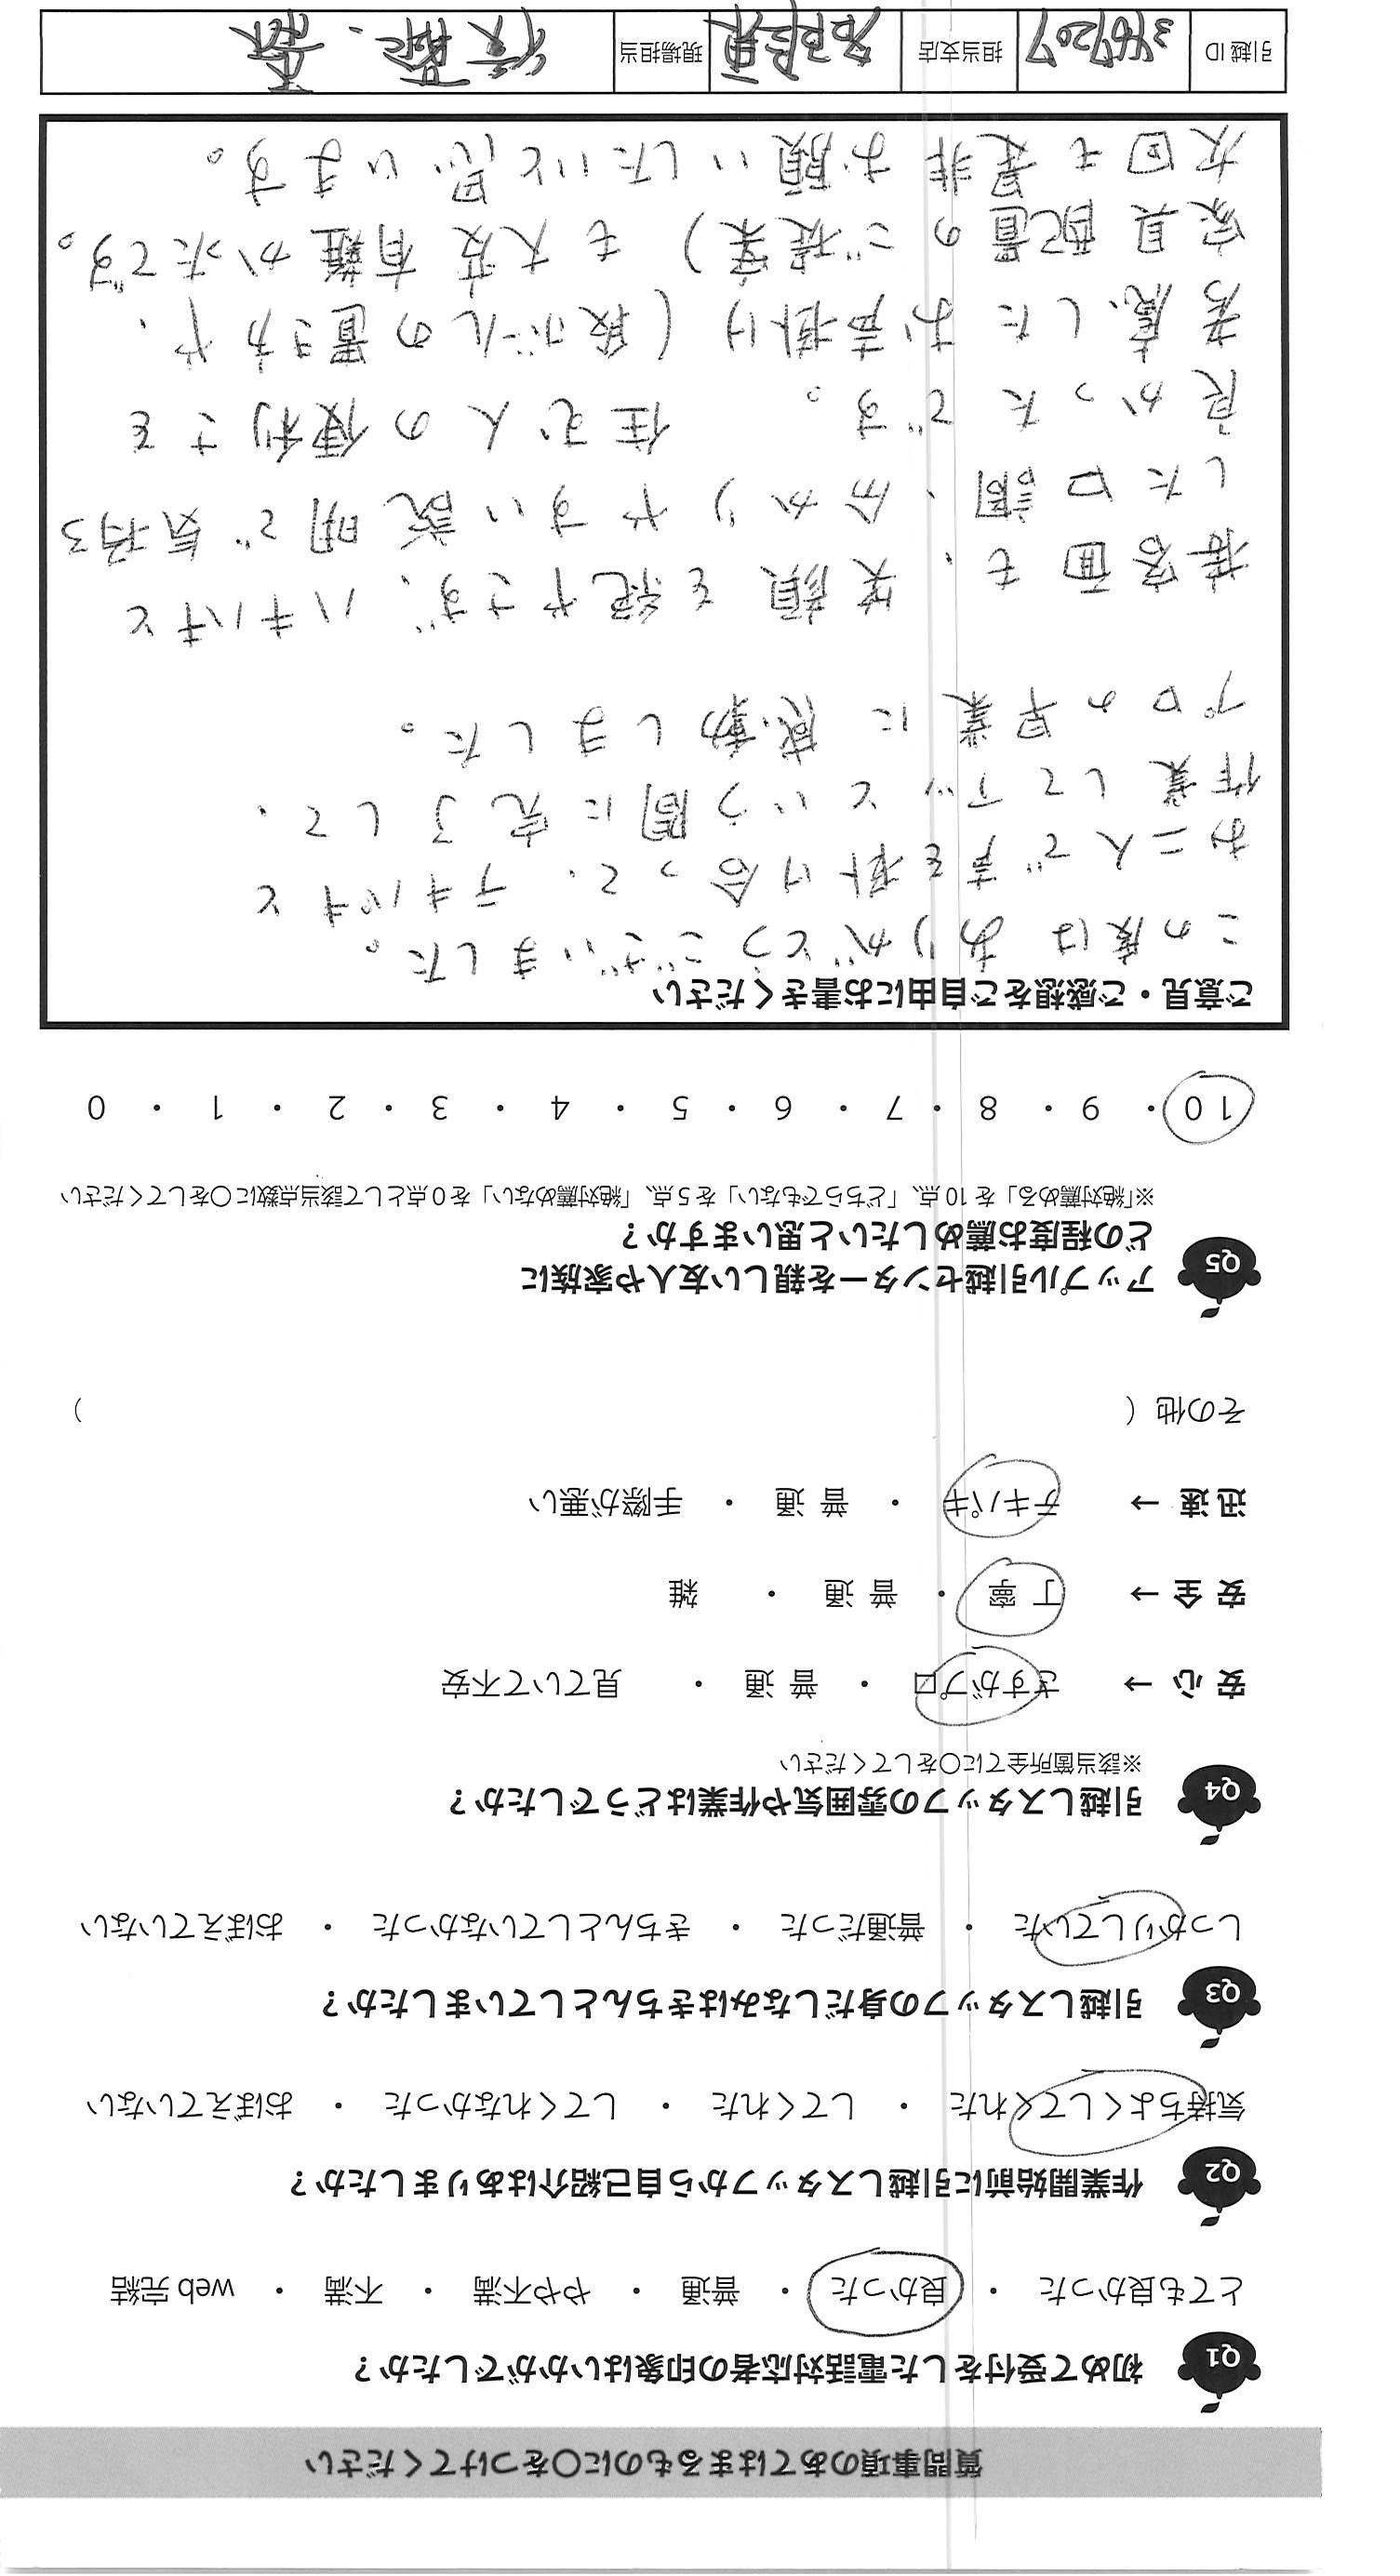 質問事項のあてはまるものに○をつけてください
Q1 初めて受付をした電話対応者の印象はいかがでしたか？
とても良かった ・ 良かった ・ 普通 ・ やや不満 ・ 不満 ・ web 完結
Q2 作業開始前に引越しスタッフから自己紹介はありましたか？
気持ちよくしてくれた ・ してくれた ・ してくれなかった ・ おぼえていない
Q3 引越しスタッフの身だしなみはきちんとしていましたか？
しっかりしていた ・ 普通だった ・ きちんとしていなかった ・ おぼえていない
Q4 引越しスタッフの雰囲気や作業はどうでしたか？
※該当箇所全てに○をしてください
安心 → さすがプロ ・ 普通 ・ 見ていて不安
安全 → 丁寧 ・ 普通 ・ 雑
迅速 → テキパキ ・ 普通 ・ 手際が悪い
その他（ ）
Q5 アップル引越センターを親しい友人や家族に
どの程度お薦めしたいと思いますか？
※「絶対薦める」を10点、「どちらでもない」を5点、「絶対薦めない」を0点として該当点数に○をしてください
10 ・ 9 ・ 8 ・ 7 ・ 6 ・ 5 ・ 4 ・ 3 ・ 2 ・ 1 ・ 0
ご意見・ご感想をご自由にお書きください
この度はありがとうございました。
お二人で声を掛け合って、テキパキと
作業してアッという間に完了して、
プロの早業に感動しました。
接客面も、笑顔を絶やさず、ハキハキと
した口調、分かりやすい説明で気持ち
良かったです。 住む人の便利さを
考慮したお声掛け（段ボルの置き方や、
家具配置のご提案）も大変有難かったです。
次回も是非お願いしたいと思います。
引越ID 3467207 担当支店 名阪東 現場担当 後藤・森